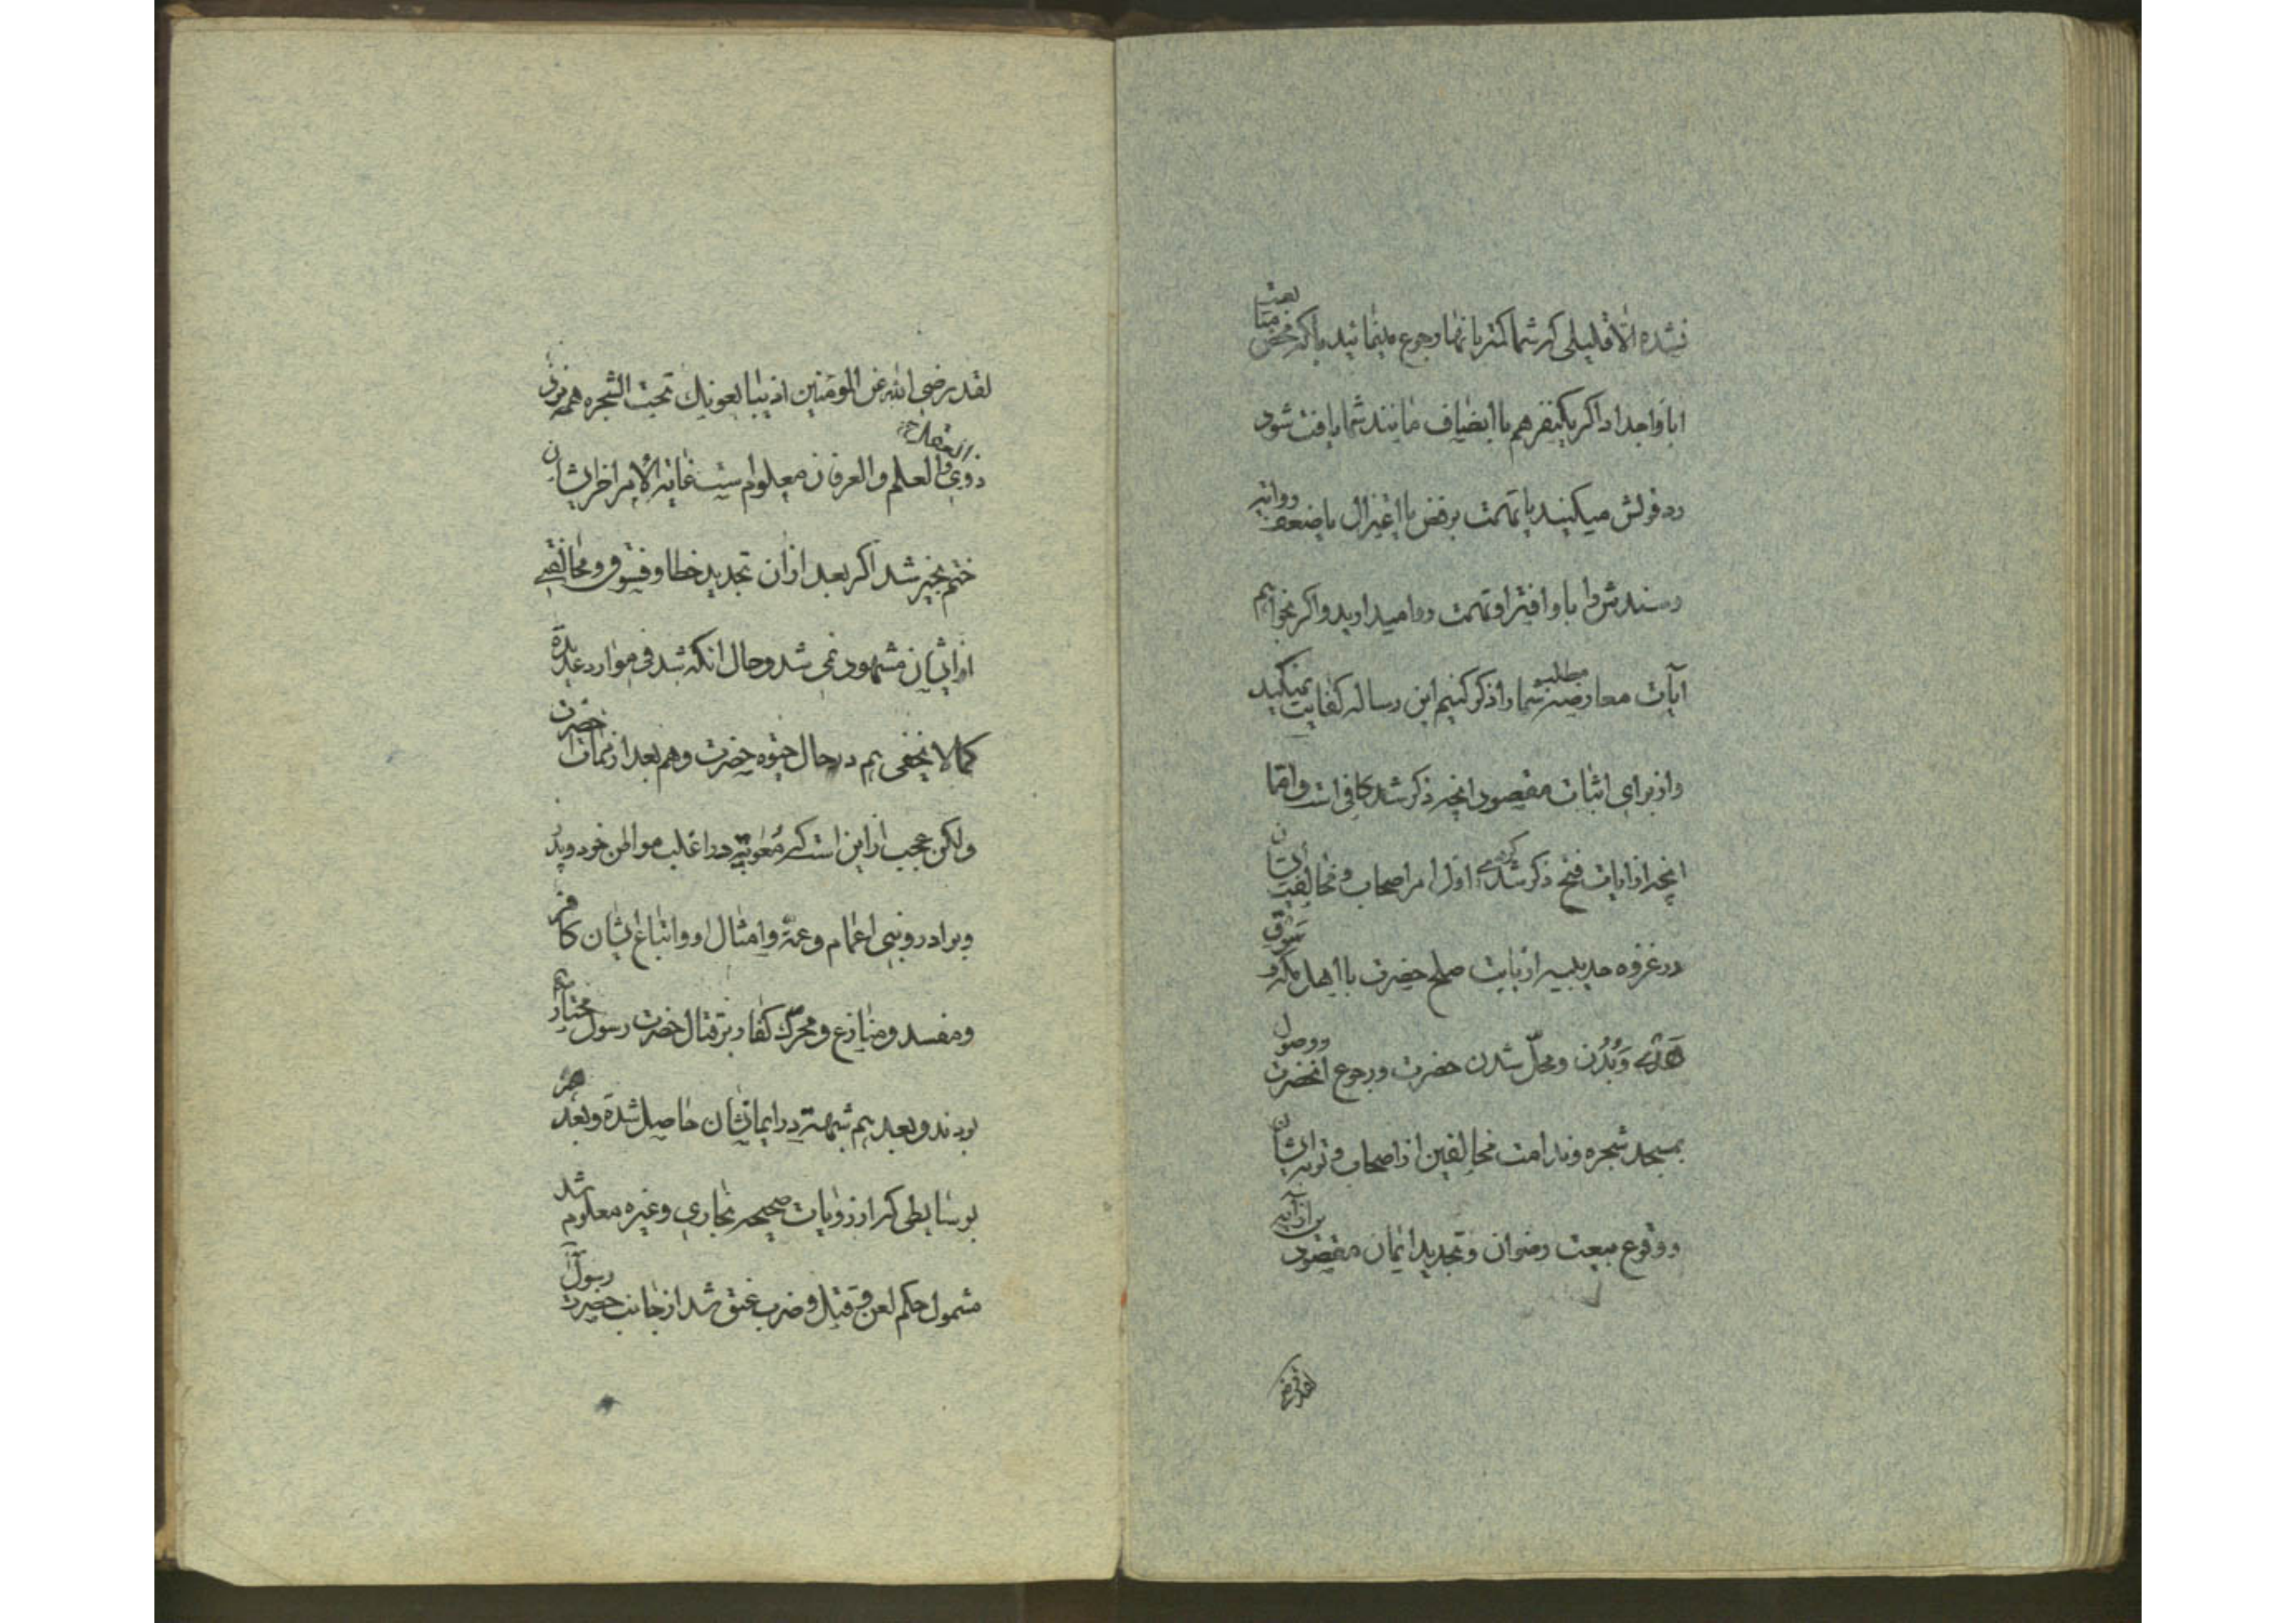 نشده الا قلیلی که شما کمتر بانها رجوع مینمائید یا که محض متابعت
ابا و اجداد اگر یکنفر هم با انصاف مانند شما یافت شود
رد قولش میکنید یا تهمت برفض یا اعتزال یا ضعف روایة
و سندش را با و افترا و تهمت روا میدارید و اگر بخواهیم
آیات معارضه مطلب شما را ذکر کنیم این رساله کفایت نمیکند
و از برای اثبات مقصود انچه ذکر شد کافی است و اما
انچه از ایات فتح ذکر شد که در اول امر اصحاب و مخالفت ایشان
در غزوه حدیبیه از بابت صلح حضرت با اهل مکه و سوق
هدی و بُدُن و محلّ شدن حضرت و رجوع انحضرت و وصول
بمسجد شجره و ندامت مخالفین از اصحاب و توبه ایشان
و وقوع بیعت رضوان و تجدید ایمان مقصود از آیه
لقد رضی
لقد رضی الله عن المؤمنین اذ یبایعونک تحت الشجره همه
ذوی العلم و العرفان معلوم است غایة الامر اخر ایشان
ختم بخیر شد اگر بعد از ان تجدید خطا و فسوق و مخالفتی
از ایشان مشهود نمی شد و حال انکه شد فی موارد عدیدة
کما لا یخفی هم در حال حیوه حضرت و هم بعد از ممات حضرت
ولکن عجیب از این است که معویة در اغلب مواطن خود و پدر
و برادر و بنی اعمام و عمّه و امثال او و اتباع ایشان کافر
و مفسد و منازع و محرّک کفار بر قتال حضرت رسول مختار
بودند و بعد هم شبهة در ایمانشان حاصل شدة و بعد هم
بوسایطی که از روایات صحیحه بخاری و غیره معلوم شد
مشمول حکم لعن و قتل و ضرب عنق شد از جانب حضرت رسول